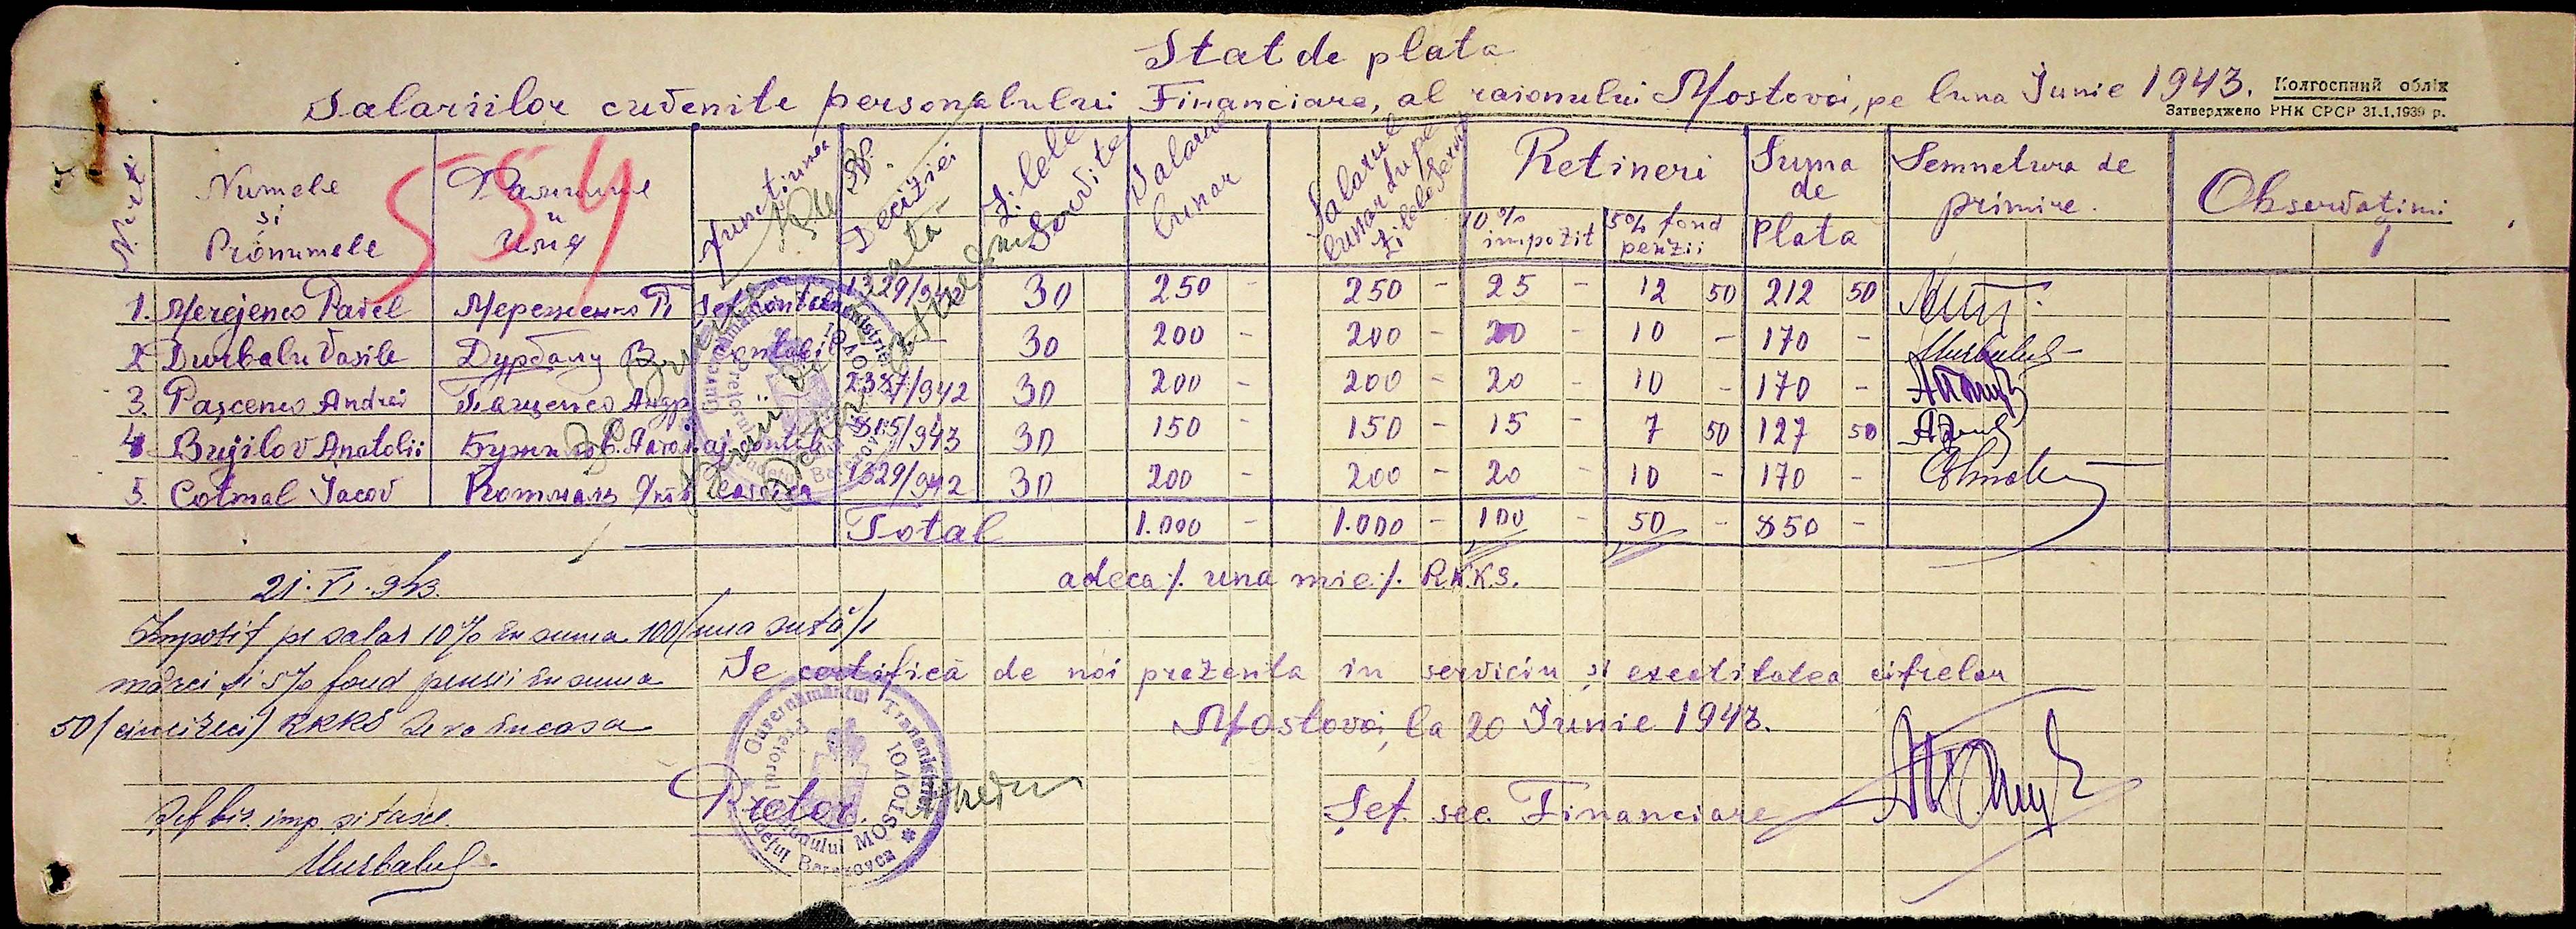 Stat de plata
Salariilor cuvenite personalului Financiare, al raionului Mostovoi, pe luna Junie 1943.
Колгоспний облік
Затверджено РНК СРСР 31.1.1939 р.
554
Nr. crt. Numele și Pronumele Фамилие и Имя Functiunea Nr. Deciziei Zilele Servite Salarul lunar Salarul lunar dupe zilele servite Retineri 10% impozit 5% fond penzii Suma de Plata Semnetura de primire. Observațiuni
1. Merejenco Pavel Мереженко П Șef contab 1329/942 30 250 - 250 - 25 - 12 50 212 50
2 Durbalu Vasile Дурбалу В contabil 30 200 - 200 - 20 - 10 - 170 -
3. Pașcenco Andrei Андр 2387/942 30 200 - 200 - 20 - 10 - 170 -
4 Bujilov Anatolii aj. contab 815/943 30 150 - 150 - 15 - 7 50 127 50
5. Cotmal Jacov Котмаль casier 1329/942 30 200 - 200 - 20 - 10 - 170 -
Total 1.000 - 1.000 - 100 - 50 - 850 -
adeca /. una mie /. R.K.K.S.
21. VI. 943.
Impozit pe salar 10% în suma 100/una sută/
mărci și 5% fond pensii în suma
50/cincizeci) RKKS se va încasa
Se certifică de noi prezenta in serviciu și exactitatea cifrelor
Mostovoi, la 20 Junie 1943.
Pretor.
Guvernământul Transnistriei
Pretorul raionului MOSTOVOI
Județul Berezovca
Șef. sec. Financiare
Șef bir. imp. și taxe.